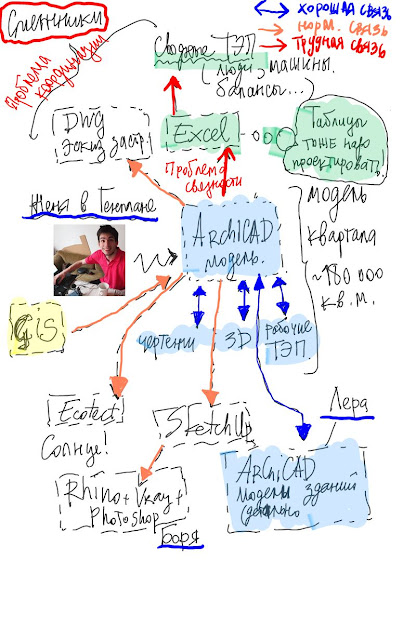 Смежники
хорошая связь
норм. связь
трудная связь
Проблема
координации
Сводные ТЭП
(люди, машины,
балансы...
DWG
эскиз застр.
Excel
Таблицы
тоже надо
проектировать!
Проблема
связности
Женя в Генплане
ArchiCAD
модель.
модель
квартала
~180 000
кв. м.
Gis
чертежи
3D
рабочие
ТЭП
Ecotect
Солнце!
SketchUp
Лера
Rhino + Vray +
Photoshop
Боря
ArchiCAD
модели зданий
детально